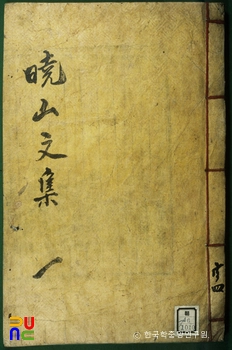 曉山文集
一
共四
© 한국학중앙연구원